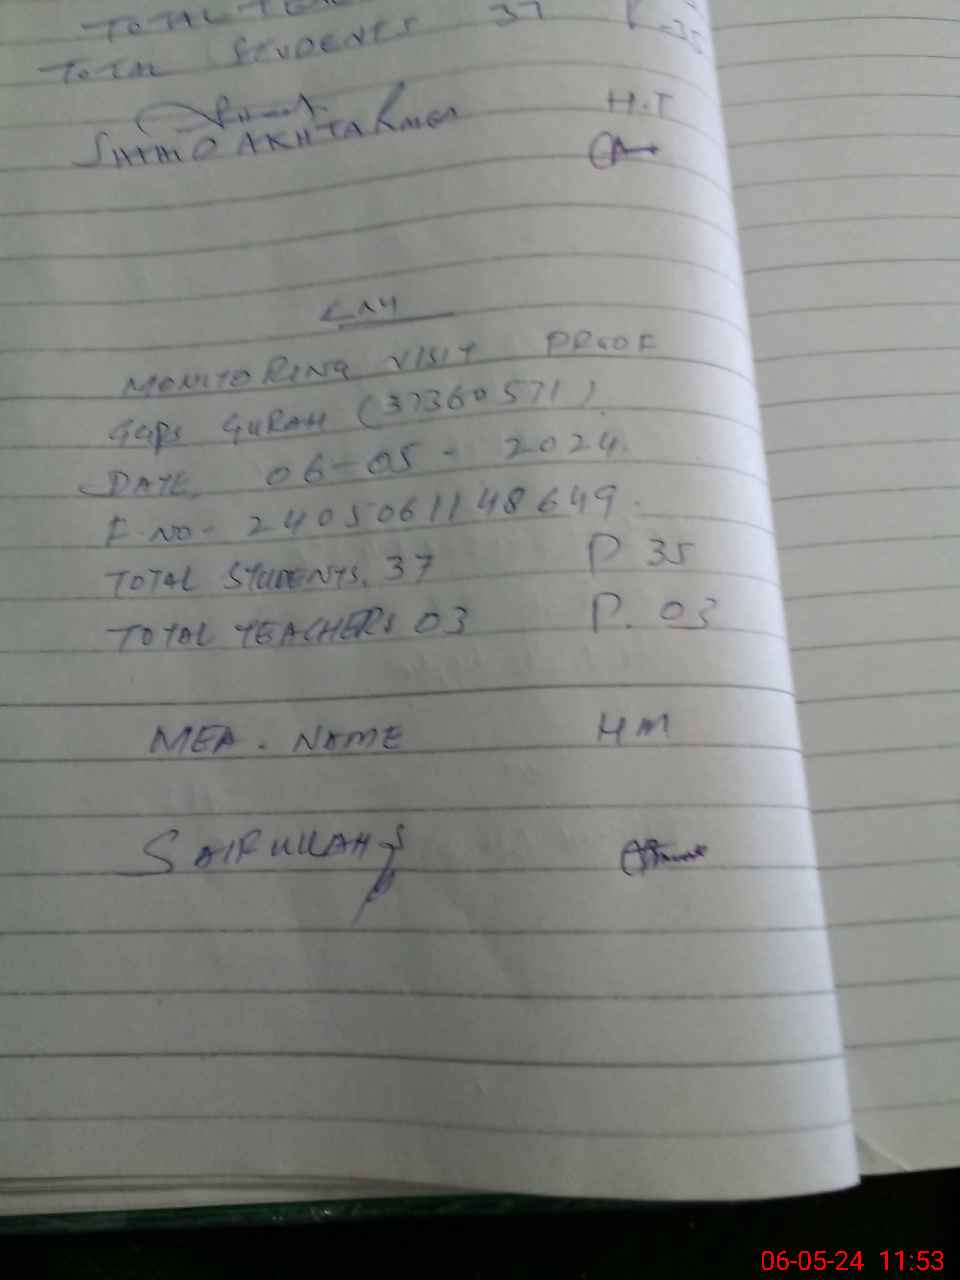 TOTAL
TOTAL STUDENTS 37 P-35
H.T
MONITORING VISIT PROOF
GGPS GURAH (37360571).
DATE. 06-05-2024.
F.NO- 2405061148649.
TOTAL STUDENTS. 37 P 35
TOTAL TEACHERS 03 P. 03
MEA. NAME HM
SAIFULLAH
06-05-24 11:53